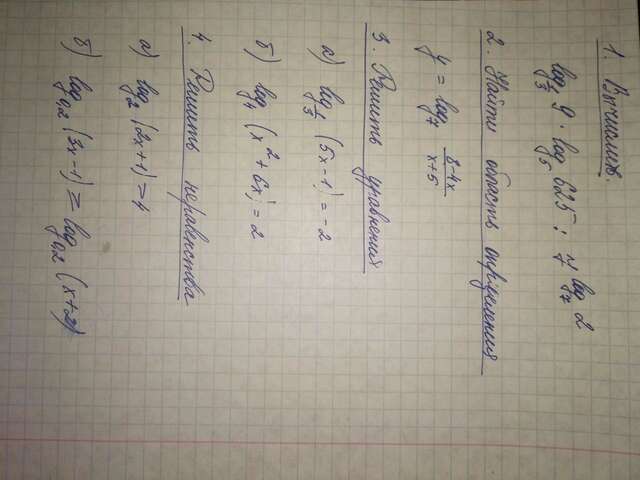 1. Вычислить.
log_{1/3} 9 · log_5 625 : 7^{log_7 2}
2. Найти область определения
y = log_7 (8-4x)/(x+5)
3. Решить уравнения
а) log_{1/3} (5x-1) = -2
б) log_4 (x^2 + 6x) = 2
4. Решить неравенства
а) log_2 (2x+1) = 4
б) log_{0,2} (3x-1) ≥ log_{0,2} (x+2)